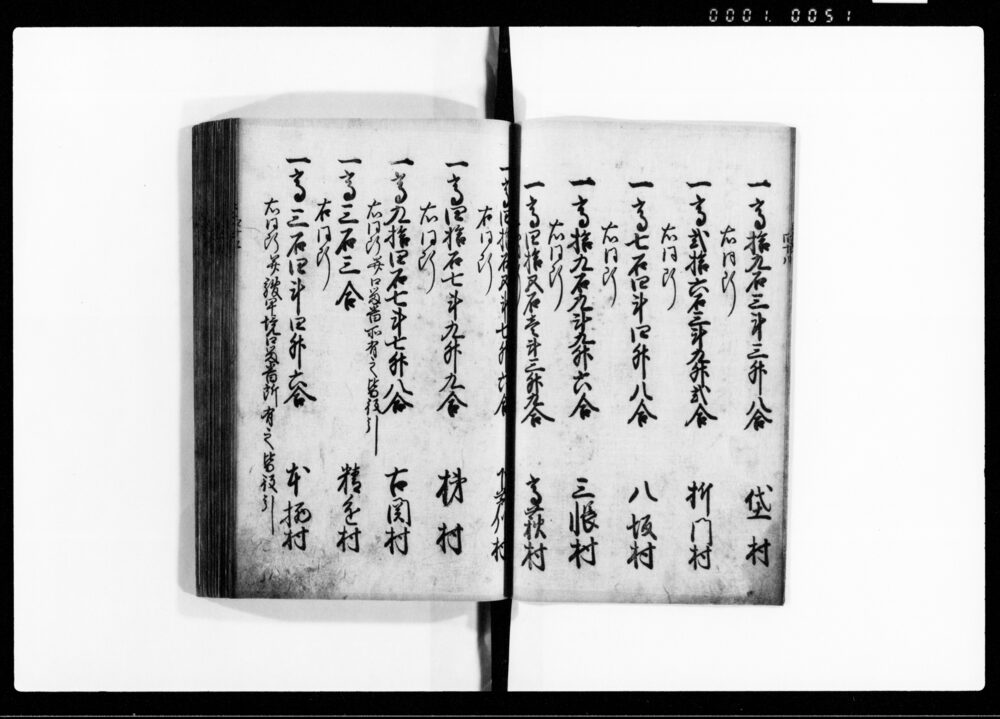 0001. 0051
一高拾九石三斗三升八合 垈村
右同断
一高弐拾六石三斗九升弐合 折門村
右同断
一高七石四斗四升八合 八坂村
右同断
一高拾九石九斗九升六合 三帳村
右同断
一高四拾弐石壱斗三升九合 高萩村
一高四拾石弐斗七升六合
右同断
一高四拾石七斗九升九合 梯村
右同断
一高九拾四石七斗七升八合 古関村
右同断 口留番所有之皆役引
一高三石三合 精進村
右同断
一高三石四斗四升六合 本栖村
右同断 口留番所有之皆役引